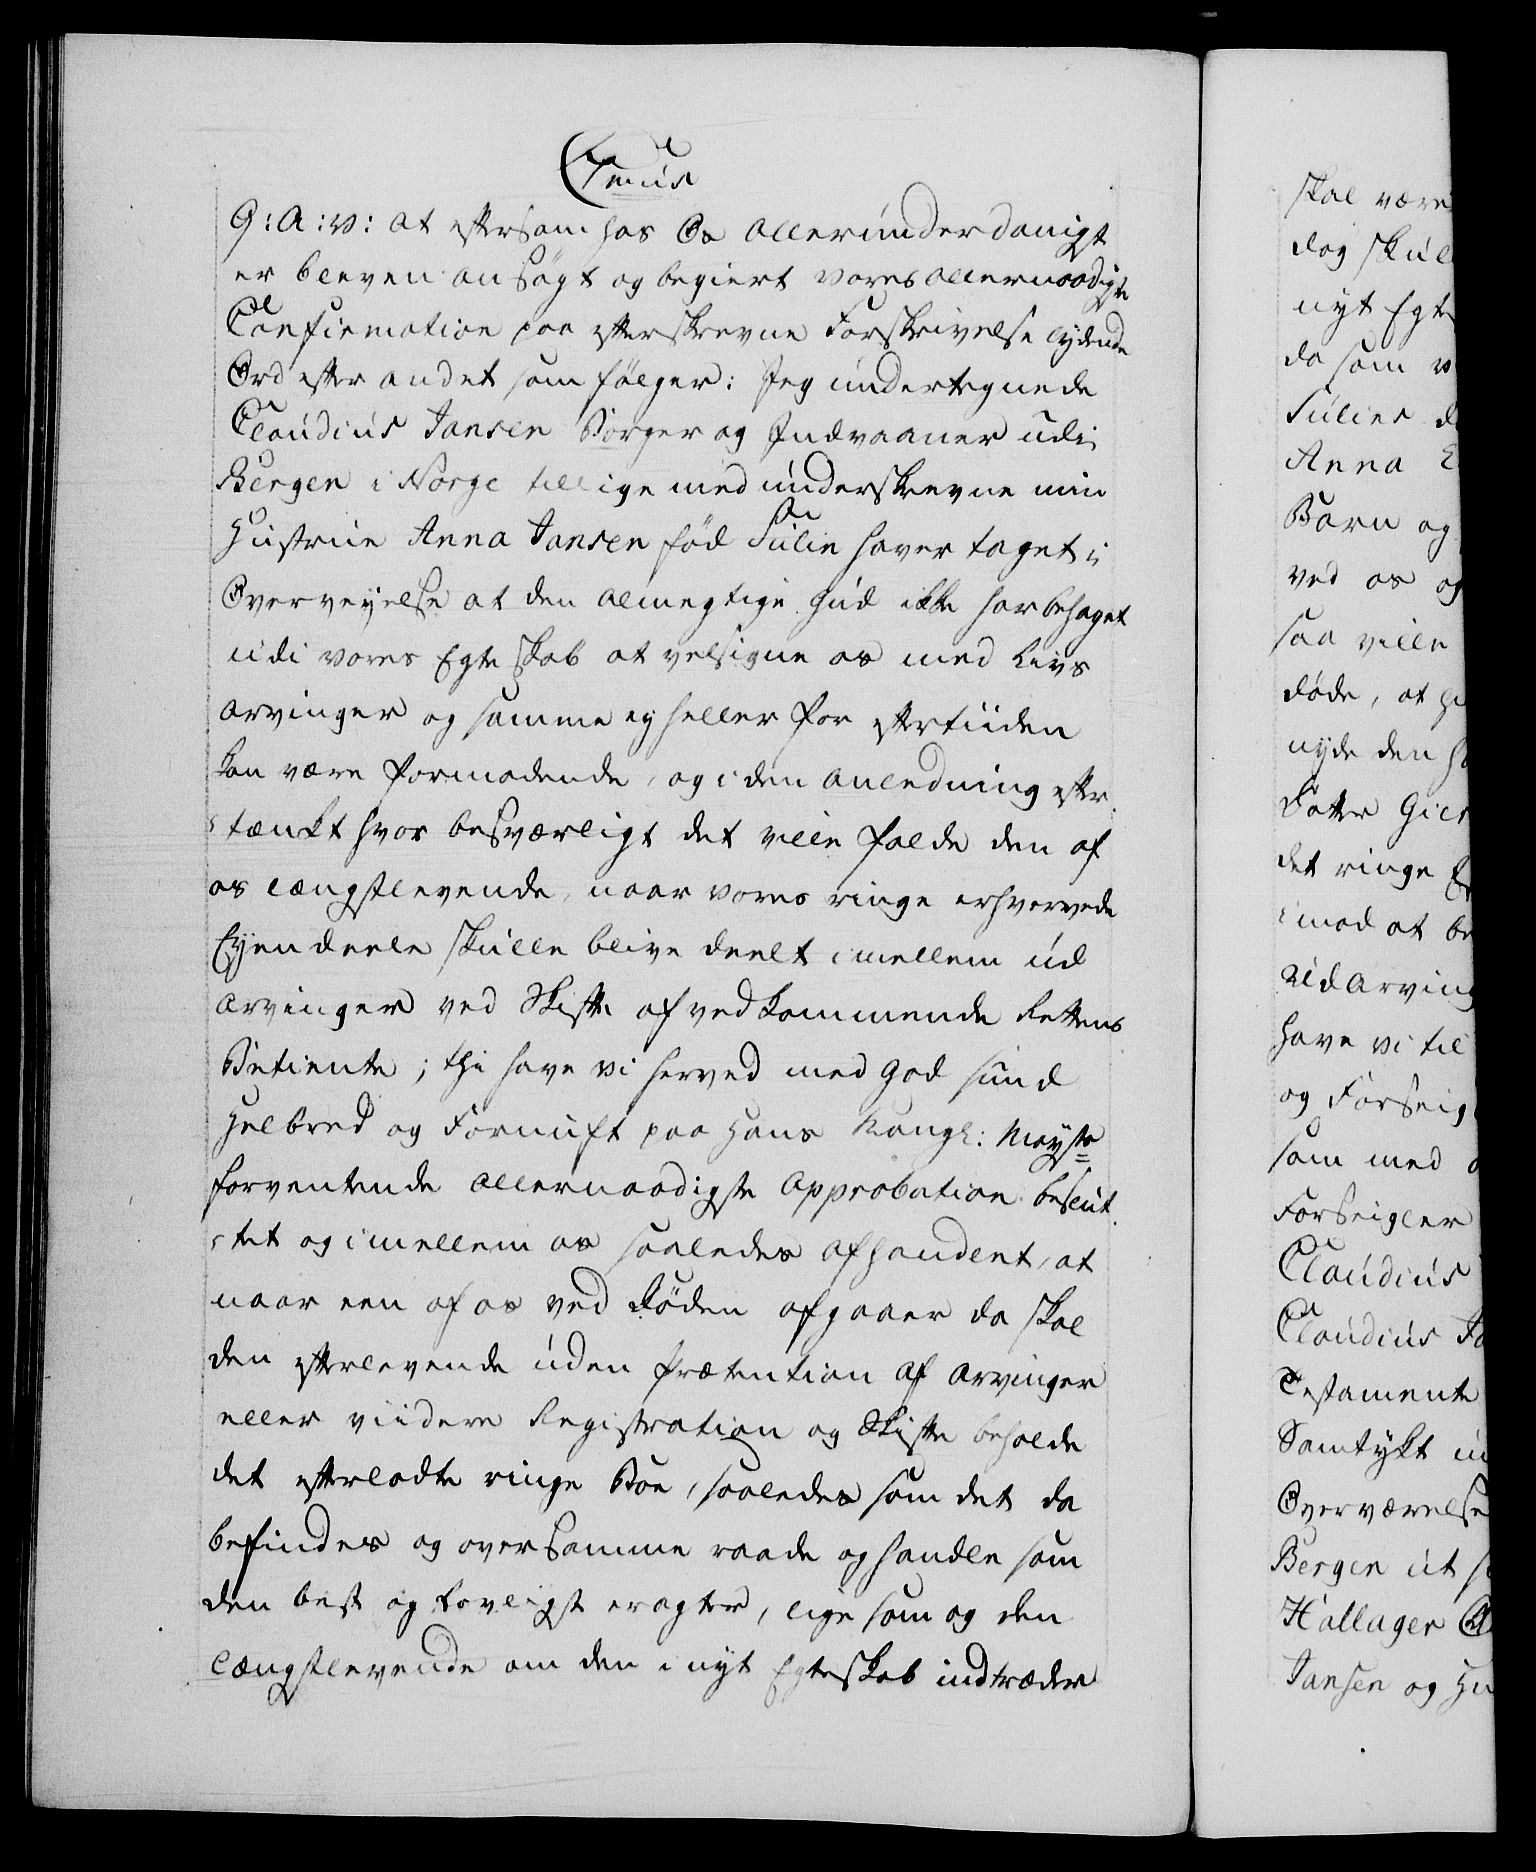 G: A: V: at eftersom hos Os allerunderdanigst
er bleven ansögt og begiert vores allernaadigste
Confirmation paa efterskrevne Forskrivelse lydende
Ord efter andet som fölger: Jeg undertegnede
Claudius Jansen Borger og Indvaaner udi
Bergen i Norge tillige med underskrevne min
Hustrue Anna Jansen föd Fulie haver taget i
Overveyelse at den almegtige Gud ikke har behaget
udi vores Egteskab at velsigne os med Livs
arvinger og samme ey heller for eftertiiden
kan være formodende, og i den anledning efter
tænkt hvor besværligt det ville falde den af
os længstlevende, naar vores ringe erhvervede
Eyendeele skulle blive deelt imellem ud
arvinger ved Skifte af vedkommende Rettens
Betiente; thi have vi herved med god sund
Helbred og Fornuft paa Hans Kongl: Mayts
forventende allernaadigste Approbation beslut
tet og imellem os saaledes afhandlet, at
naar een af os ved Döden afgaaer da skal
den efterlevende uden Prætention af arvinger
eller viidere Registration og Skifte beholde
det efterladte ringe Boe, saaledes som det da
befindes og over samme raade og handle som
den best og lovligst eragter, lige som og den
længstlevende om den i nyt Egteskab indtræder
skal være
dog skul
nyt Egte
da som v
Fulies d
Anna
Barn og
ved os og
saa ville
döde, at
nyde den
Datter Gier
det ringe
imod at be
Udarving
have vi til
og Forseig
som med
Forseigler
Claudius
Claudius Ja
Testamente
Samtykt
Overværelse
Bergen ut s
Hallager
Jansen og Hu